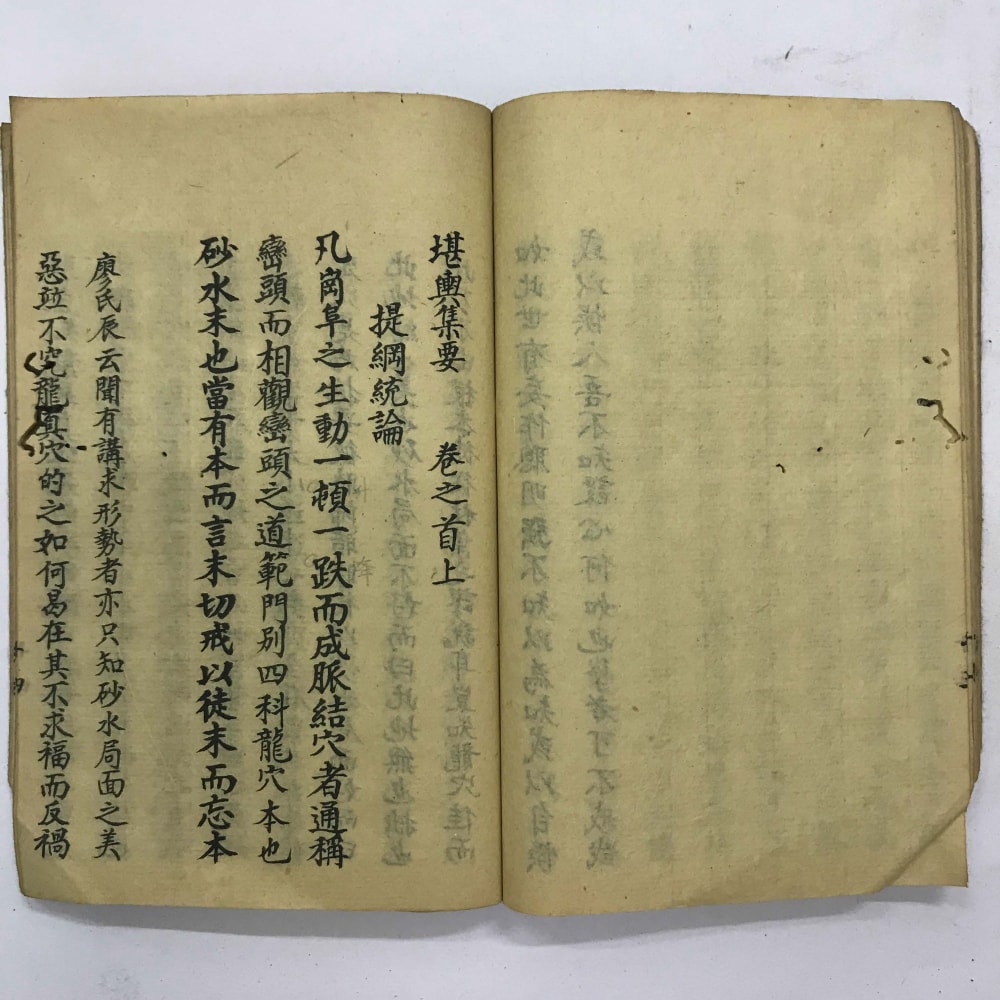 堪輿集要 卷之首上
提綱統論
凡崗阜之生動一頓一跌而成脈結穴者通稱
巒頭而相觀巒頭之道範門別四科龍穴本也
砂水末也當有本而言末切戒以徒末而忘本
廖氏辰云聞有講求形勢者亦只知砂水局面之美
惡竝不究龍真穴的之如何曷在其不求福而反禍